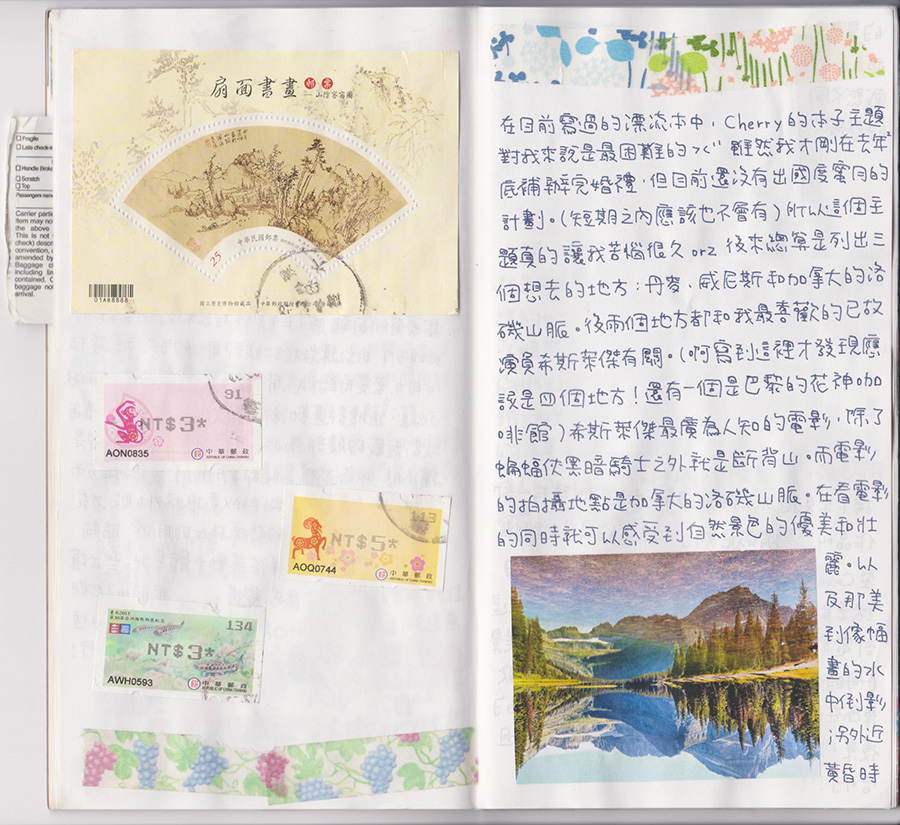 扇面書畫
郵票
—山陰客窗圖
25
中華民國郵票
01A88888
國立歷史博物館藏品
□ Fragile
□ Late check-in
□ Handle Broke
□ Scratch
□ Top
Passengers name
Carrier partic
Item may not
the above
This is not
check) descri
convention, a
amended by
Baggage c
including lim
contained. C
baggage not
arrival.
91
NT$3*
AON0835
中華郵政
REPUBLIC OF CHINA (TAIWAN)
113
NT$5*
AOQ0744
中華郵政
REPUBLIC OF CHINA (TAIWAN)
134
NT$3*
AWH0593
中華郵政
REPUBLIC OF CHINA (TAIWAN)
在目前寫過的漂流本中，Cherry的本子主題
對我來說是最困難的>"< 雖然我才剛在去年
底補辦完婚禮，但目前還沒有出國度蜜月的
計劃。(短期之內應該也不會有) 所以這個主
題真的讓我苦惱很久 orz 後來總算是列出三
個想去的地方：丹麥、威尼斯和加拿大的洛
磯山脈。後兩個地方都和我最喜歡的已故
演員希斯萊傑有關。(啊寫到這裡才發現應
該是四個地方！還有一個是巴黎的花神咖
啡館) 希斯萊傑最廣為人知的電影，除了
蝙蝠俠黑暗騎士之外就是斷背山。而電影
的拍攝地點是加拿大的洛磯山脈。在看電影
的同時就可以感受到自然景色的優美和壯
麗。以
及那美
到像幅
畫的水
中倒影
；另外近
黃昏時